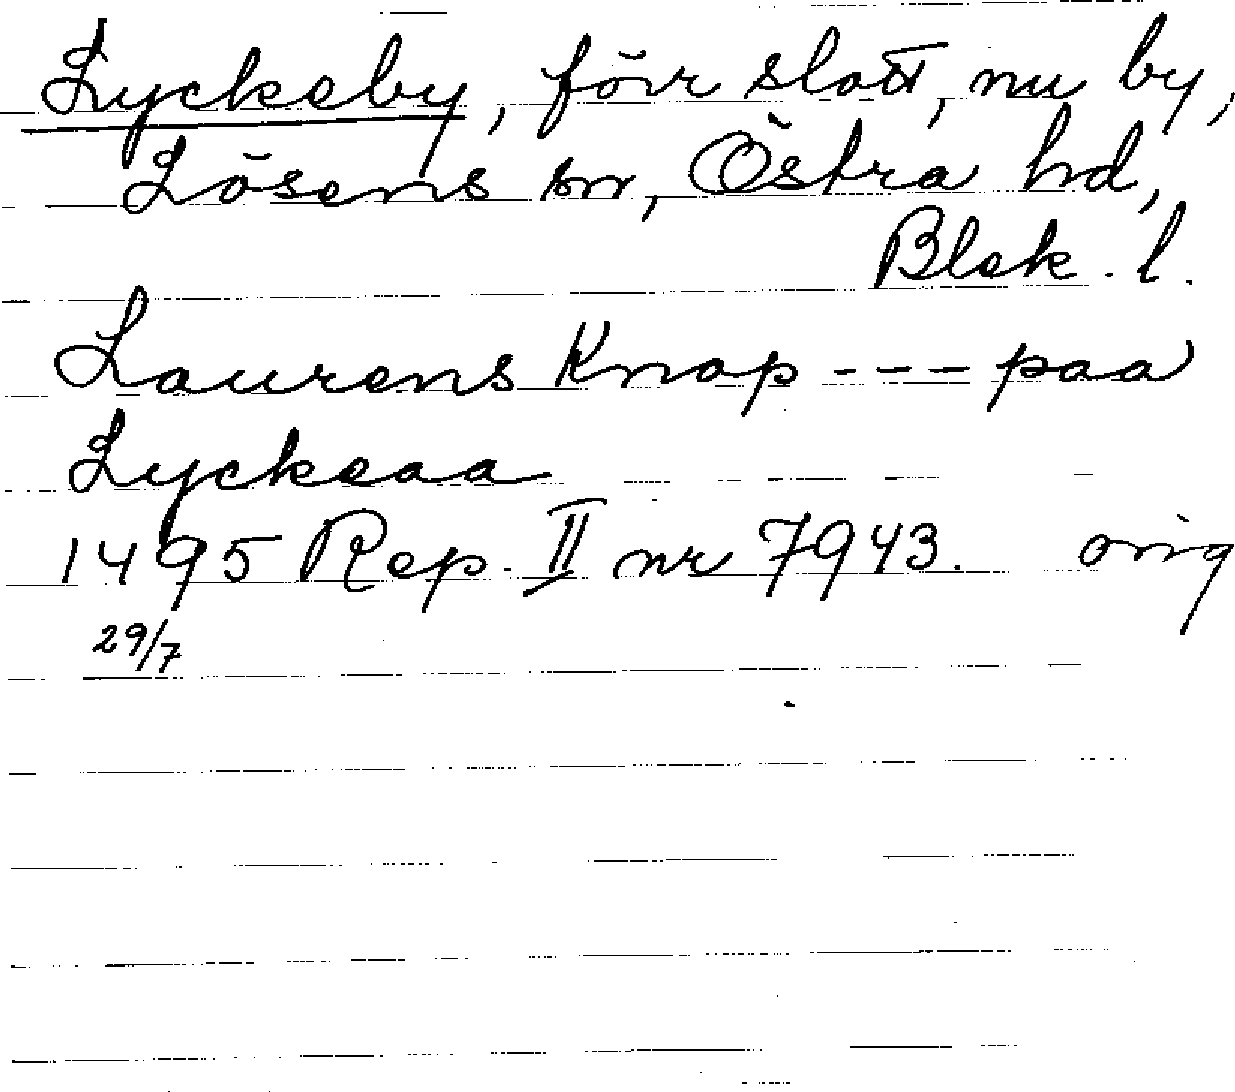 Lyckeby, förr slott, nu by,
Lösens sn, Östra hd,
Blek. l.
Laurens Knap --- paa
Lyckeaa
1495 Rep. II nr 7943. orig
29/7